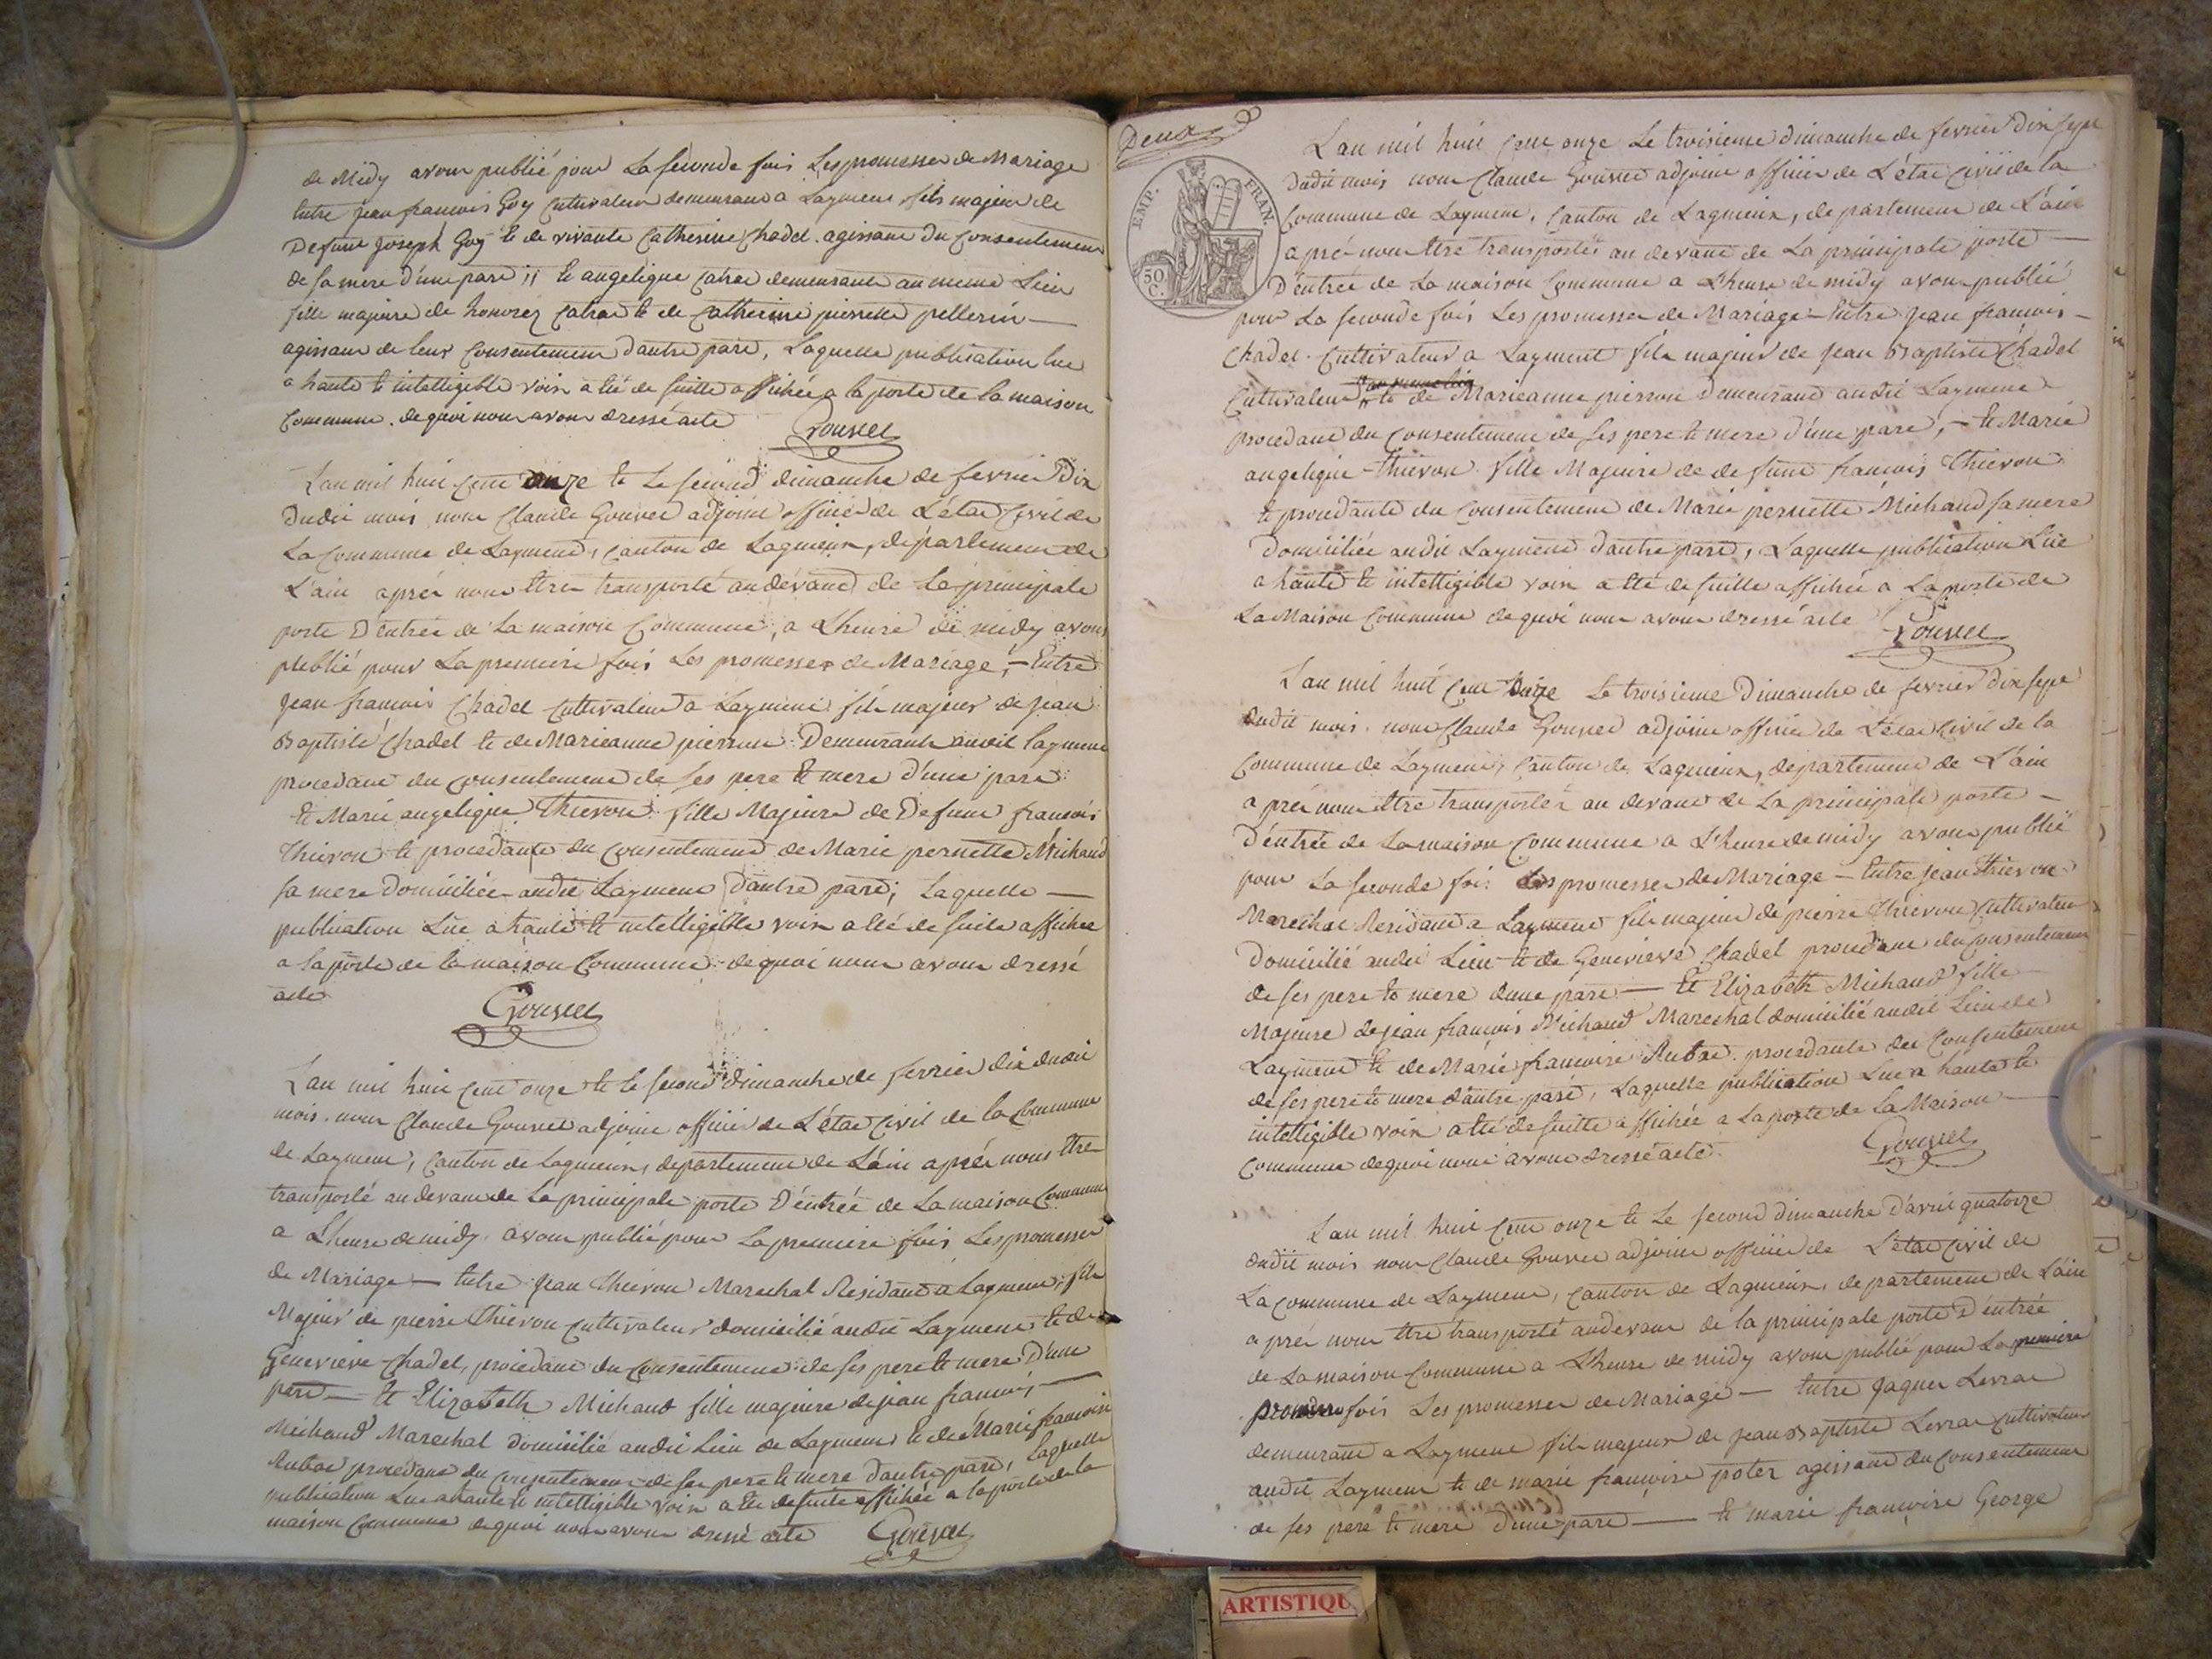 de Midy avons publié pour La seconde fois Les promesses de Mariage
Entre jean francois Goy Cultivateur demeurant a Layment fils majeur de
Defunt Joseph Goy et de vivante Catherine Chadel. agissant du Consentement
de sa mere d'une part ;; et angelique demeurante au meme Lieu
fille majeure de honoréz et de Catherine pierrette pellerin —
agissant de leur Consentement d'autre part, Laquelle publication lue
a haute et intelligible voix a eté de suitte affichée a la porte de la maison
Commune. de quoi nous avons dressé acte
Gouvet
L'an mil huit cent onze et Le second dimanche de fevrier Dix
Dudit mois nous Claude Gouvet adjoint officier de L'état Civil de
La Commune de Layment, Canton de Lagnieux, département de
L'ain aprés nous Etre transporté au dévant de La principale
porte D'entrée de La maison Commune, a L'heure de midy avons
publié pour La premiere fois Les promesses de Mariage, — Entre
Jean francois Chadel Cultivateur a Layment fils majeur de Jean
Baptiste Chadel et de Marieanne pierron Demeurants audit layment
procedant du Consentement de ses pere et mere d'une part
et Marie angelique Thievon fille Majeure de Defunt francois
Thievon et procedante du Consentement de Marie pernette Michaud
sa mere domiciliée audit Layment d'autre part; Laquelle —
publication Lüe a haute et intelligible voix a eté de suite affichée
a la porte de la maison Commune de quoi nous avons dressé
acte
Gouvet
L'an mil huit cent onze et le second dimanche de fevrier dix dudit
mois. nous Claude Gouvet adjoint officier de L'état Civil de la Commune
de Layment, Canton de Lagnieux, departement de L'ain aprés nous Etre
transporté au devant de La principale porte D'entrée de La maison Commune
a L'heure de midy. avons publié pour La premiere fois Les promesses
de Mariage — Entre Jean Thievon Marechal Residant a Layment, fils
Majeur de pierre Thievon Cultivateur domicilié audit Layment et de
Genevieve Chadel, procedant du Consentement de ses pere et mere D'une
part — et Elizabeth Michaud fille majeure de jean francois —
Michaud Marechal domicilié audit Lieu de Layment et de Marie francoise
procedant du consentement de ses pere et mere d'autre part, Laquelle
publication Lue a haute et intelligible voix a eté de suite affichée a la porte de la
maison Commune de quoi nous avons dressé acte
Gouvet
Deux
EMP. FRAN.
50 C.
L'an mil huit cent onze Le troisieme dimanche de fevrier Dix sept
Dudit mois nous Claude Gouvet adjoint officier de L'état Civil de la
Commune de Layment, Canton de Lagnieux, departement de L'ain
aprés nous Etre transporté au devant de La principale porte —
D'entrée de La maison Commune a L'heure de midy avons publié
pour La seconde fois Les promesses de Mariage Entre Jean francois —
Chadel. Cultivateur a Layment fils majeur de Jean Baptiste Chadel
Cultivateur et de Marieanne pierron Demeurant audit Layment
procedant du Consentement de ses pere et mere d'une part, — et Marie
angelique Thievon fille Majeure de defunt francois Thievon
et procedante du Consentement de Marie pernette Michaud sa mere
Domiciliée audit Layment d'autre part, Laquelle publication Lüe
a haute et intelligible voix a eté de suitte affichée a La porte de
La Maison Commune de quoi nous avons dressé acte
Gouvet
L'an mil huit cent onze Le troisieme Dimanche de fevrier dix sept
dudit mois. nous Claude Gouvet adjoint officier de L'état Civil de la
Commune de Layment, Canton de Lagnieux, departement de L'ain
aprés nous Etre transporté au devant de La principale porte —
D'entrée de La maison Commune a L'heure de midy avons publié
pour La seconde fois Les promesses de Mariage — Entre jean Thievon
Marechal Residant a Layment fils majeur de pierre Thievon Cultivateur
Domicilié audit Lieu et de Genevieve Chadel procedant du Consentement
de ses pere et mere d'une part — Et Elizabeth Michaud fille
Majeure de jean francois Michaud Marechal domicilié audit Lieu de
Layment et de Marie francoise procedante du Consentement
de ses pere et mere d'autre part, Laquelle publication Lue a haute et
intelligible voix a eté de suitte affichée a La porte de La Maison —
Commune de quoi nous avons dressé acte.
Gouvet
L'an mil huit cent onze et Le second dimanche d'avril quatorze
dudit mois nous Claude Gouvet adjoint officier de L'état Civil de
La Commune de Layment, Canton de Lagnieux, departement de L'ain
aprés nous Etre transporté au devant de la principale porte D'entrée
de La maison Commune a L'heure de midy avons publié pour La premiere
fois Les promesses de Mariage — Entre Jaques Levrat
demeurant a Layment fils majeur de Jean Baptiste Levrat Cultivateur
audit Layment et de marie françoise agissant du Consentement
de ses pere et mere d'une part — et marie françoise George
ARTISTIQU